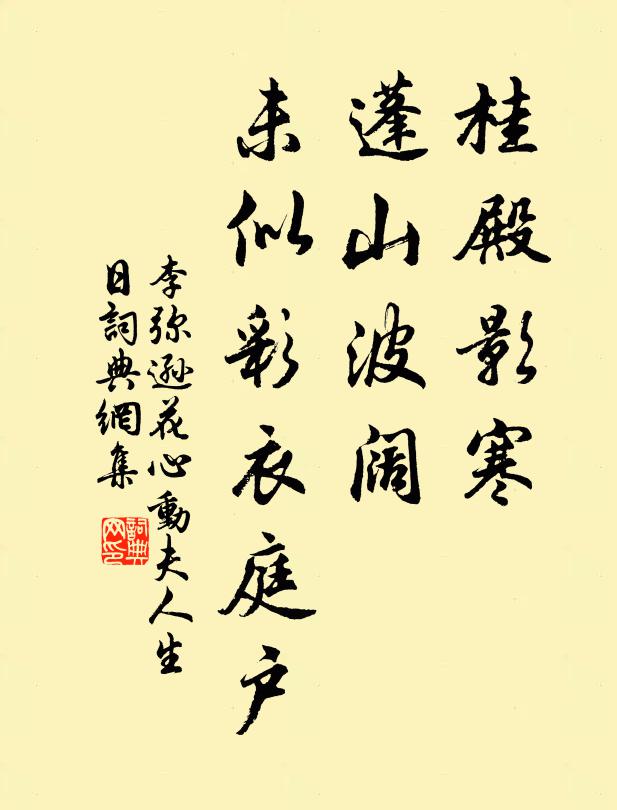 桂殿影寒
蓬山波阔
未似彩衣庭户
李弥逊花心動夫人生
日詞典網集
詞典
网印